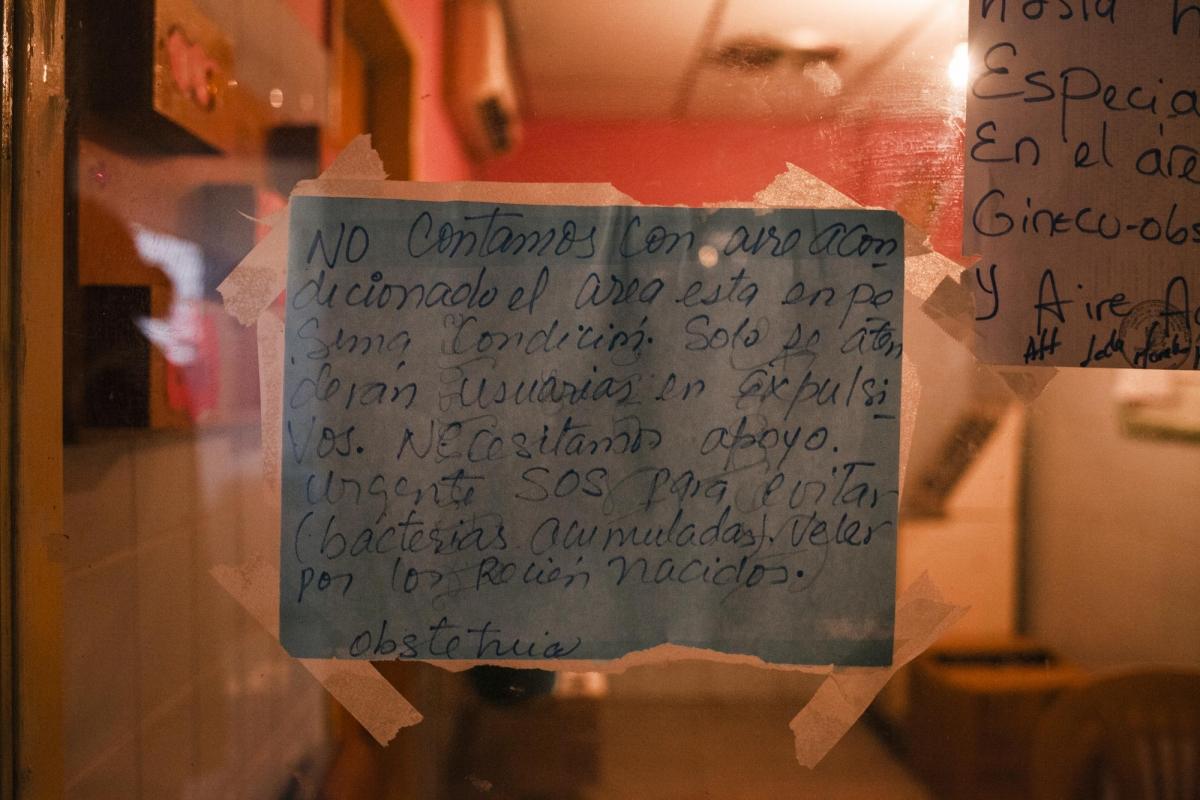 NO Contamos Con aire acon
dicionado el area esta en pe
sima Condición. Solo se aten
derán usuarias en expulsi
vos. NECesitamos apoyo.
urgente SOS para evitar
(bacterias acumuladas). Velar
por los Recién nacidos.
obstetricia
hasta h
Especia
En el áre
Gineco-obs
y Aire A
Att